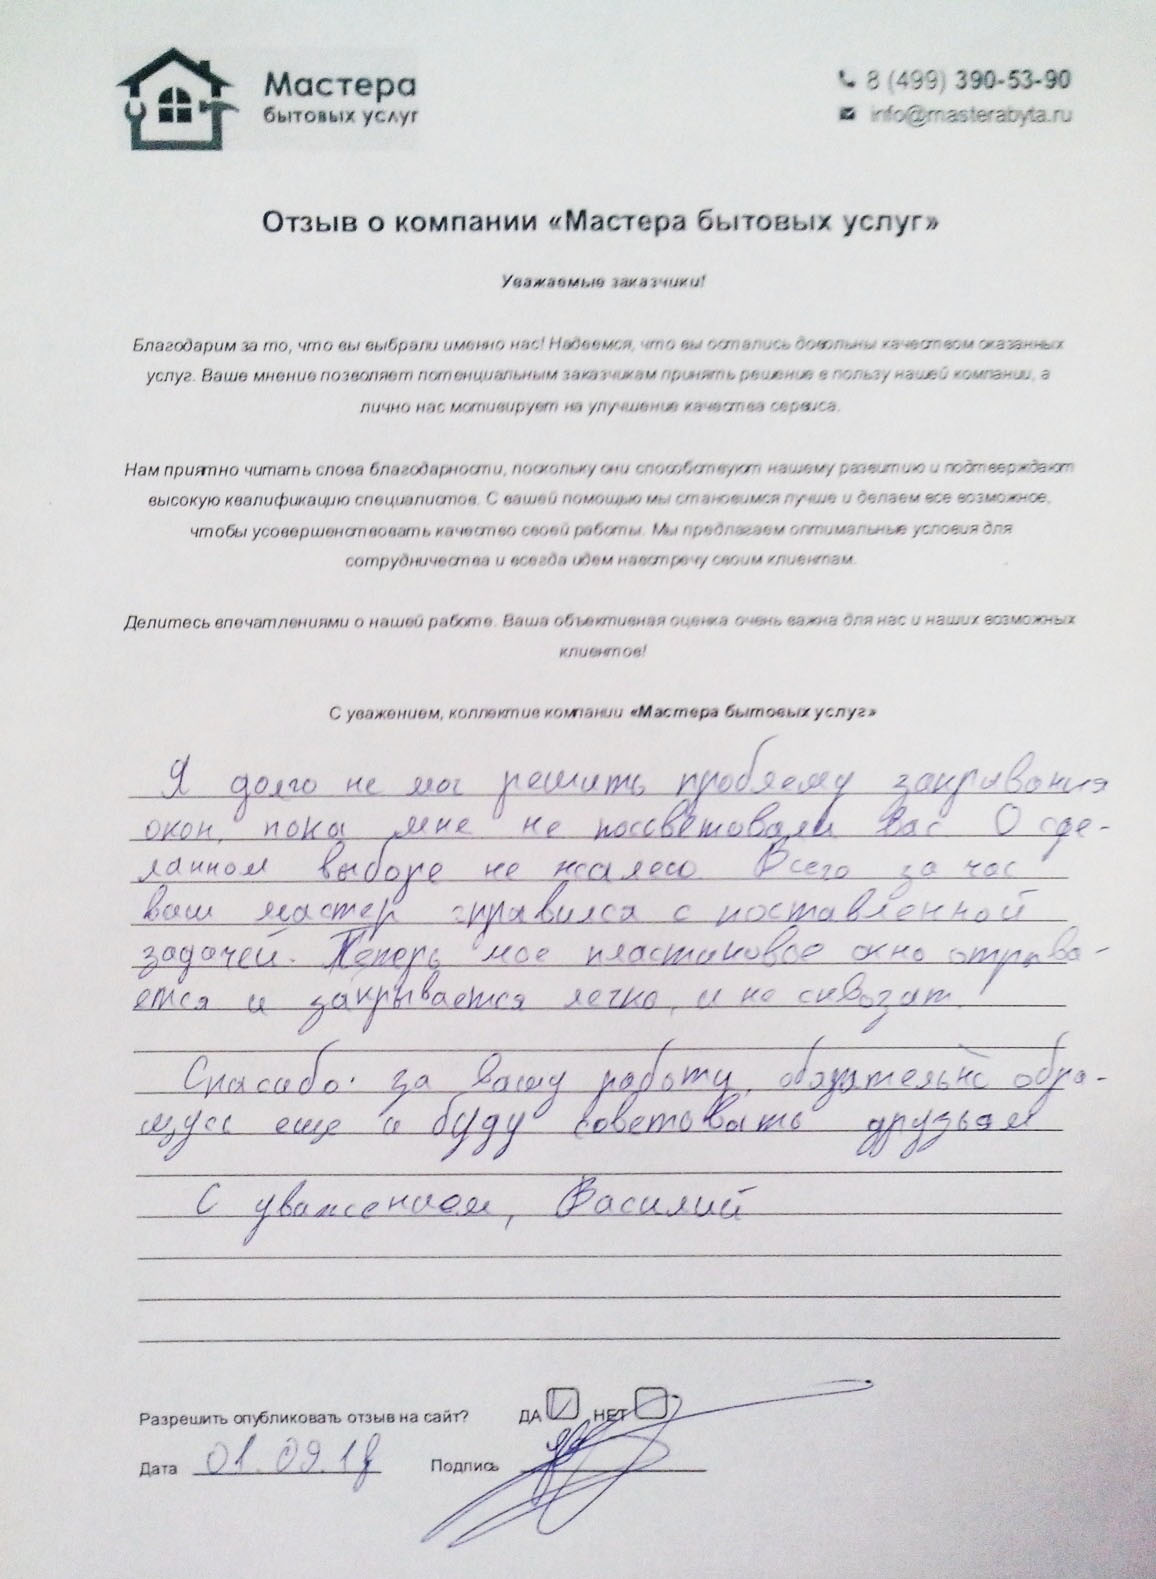 Мастера
бытовых услуг
8 (499) 390-53-90
info@masterabyta.ru
Отзыв о компании «Мастера бытовых услуг»
Уважаемые заказчики!
Благодарим за то, что вы выбрали именно нас! Надеемся, что вы остались довольны качеством оказанных
услуг. Ваше мнение позволяет потенциальным заказчикам принять решение в пользу нашей компании, а
лично нас мотивирует на улучшение качества сервиса.
Нам приятно читать слова благодарности, поскольку они способствуют нашему развитию и подтверждают
высокую квалификацию специалистов. С вашей помощью мы становимся лучше и делаем все возможное,
чтобы усовершенствовать качество своей работы. Мы предлагаем оптимальные условия для
сотрудничества и всегда идем навстречу своим клиентам.
Делитесь впечатлениями о нашей работе. Ваша объективная оценка очень важна для нас и наших возможных
клиентов!
С уважением, коллектив компании «Мастера бытовых услуг»
Я долго не мог решить проблему закрывания
окон, пока мне не посоветовали Вас О сде-
ланном выборе не жалею. Всего за час
ваш мастер справился с поставленной
задачей. Теперь мое пластиковое окно
ется и закрывается легко, и не сквозит.
Спасибо за Вашу работу, обязательно обра-
щусь еще и буду советовать друзьям
С уважением, Василий
Разрешить опубликовать отзыв на сайт? ДА НЕТ
Дата 01.09.18 Подпись